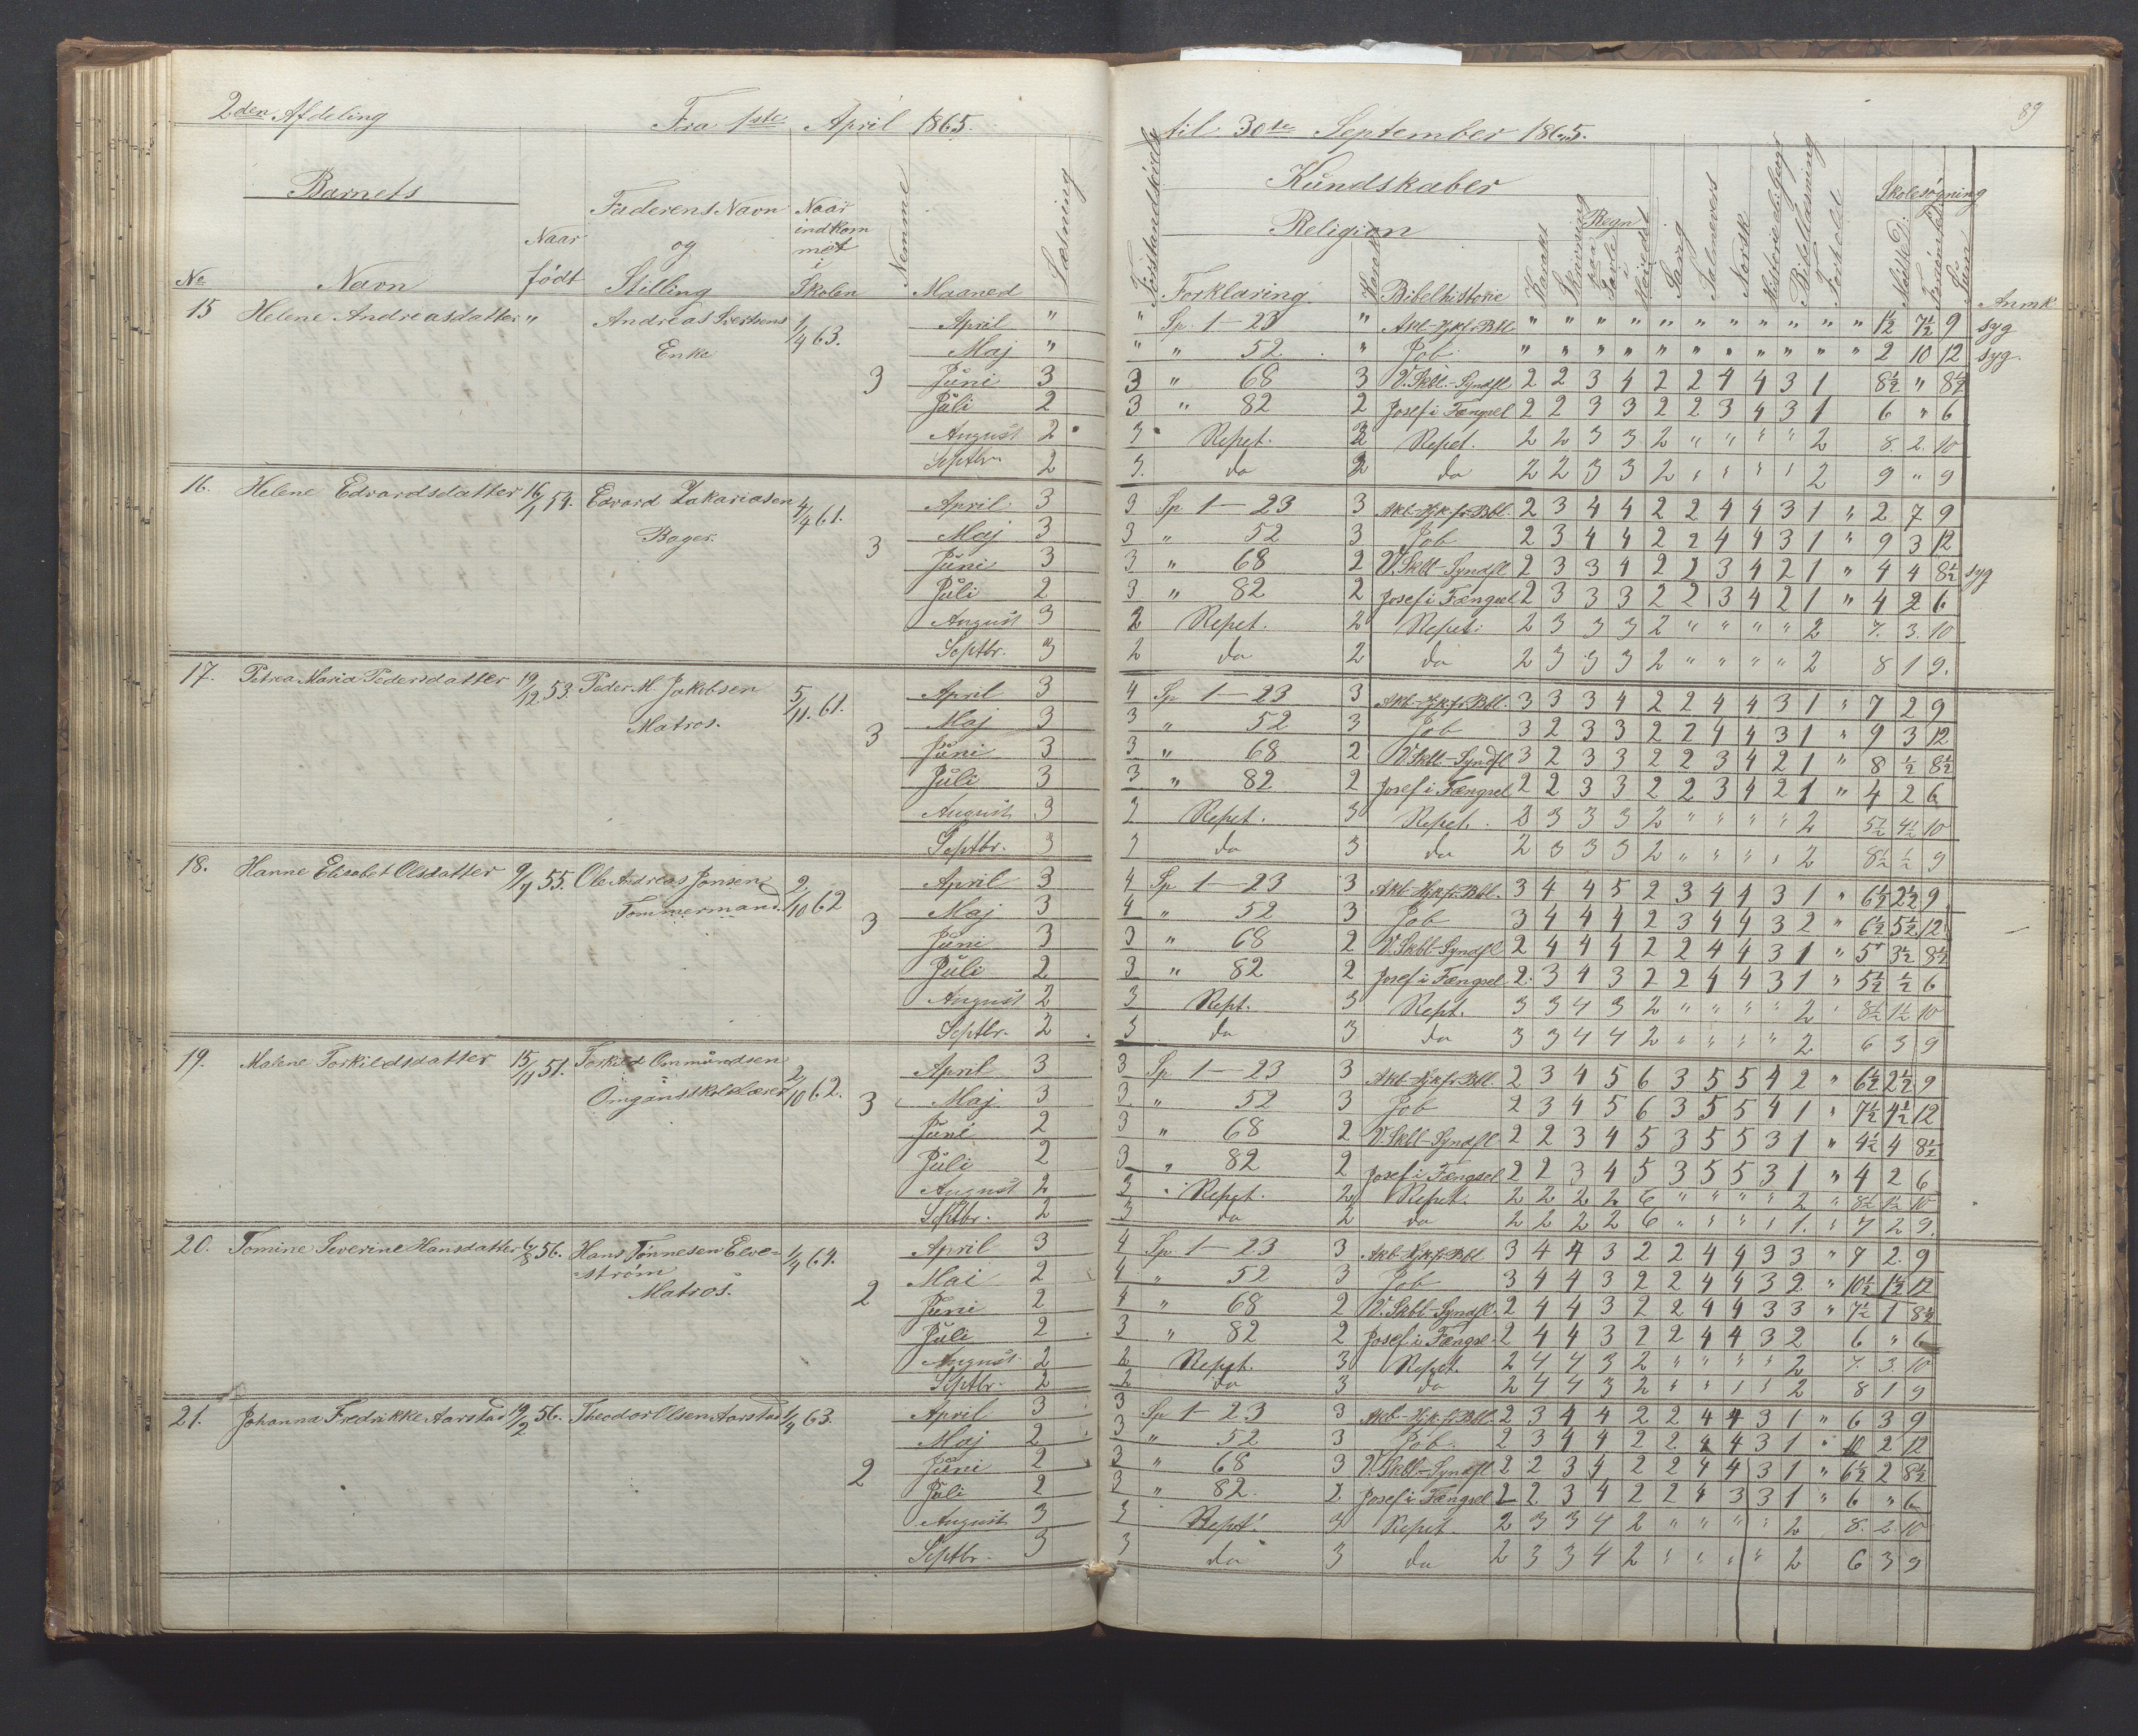 2den Afdeling
Fra 1ste April 1865.
til 30te September 1865.
89
Barnets
Faderens Navn
og
Stilling
Naar
indkom
met
i
Skolen
Nemme
Maaned
Læsning
№
Navn
Naar
født
Forstandsøvelse
Kundskaber
Religion
Forklaring.
Karak
Bibelhistorie
Karakt
Skrivning
Regn
paa
Tavle
i
Hovedet
Sang
Salmevers
Norsk
Bibellæsning
Forhold
Skolesøgning
Mødt
Forsømt
Sum
Anmk
15 Helene Andreasdatter " Andreas Ivertsens 1/4 63. April " " Sp. 1-23 " Akb-Hjkfr Bbl. " " " " " " " " " " " 1½ 7½ 9 syg
Enke Maj " " " 52 " Job " " " " " " " " " " " 2 10 12 syg.
3 Juni 3 3 " 68 3 V. Skbl.-Syndfl 2 2 3 4 2 2 4 4 3 1 8½ " 8½
Juli 2 3 " 82 2 Josef i Fængsel 2 2 3 3 2 2 3 4 3 1 6 " 6
August 2 3 Repet. 2 Repet. 2 2 3 3 2 " " " " 2 8. 2. 10
Septbr. 2 3. do 2 do 2 2 3 3 2 " " " " 2 9 " 9
16. Helene Edvardsdatter 16/1 54. Edvard Zakariasen 4/4 61. April 3 3 Sp 1-23 3 Akb-Hjkfr Bbl. 2 3 4 4 2 2 4 4 3 1 " 2 7 9
Bager. Maj 3 3 " 52 3 Job 2 3 4 4 2 2 4 4 3 1 " 9 3 12
3 Juni 3 3 " 68 2 V. Skbl-Syndfl 2 3 3 4 2 2 3 4 2 1 " 4 4 8½ syg
Juli 2 3 " 82 2 Josef i Fængsel 2 3 3 3 2 2 3 4 2 1 " 4 2 6
August 3 2 Repet. 2 Repet. 2 3 3 3 2 " " " " 2 7. 3. 10
Septbr. 3 2 do 2 do 2 3 3 3 2 " " " " 2 8 1 9.
17. Petrea Maria Pedersdatter 19/12 53. Peder M. Jakobsen 5/11. 61. April 3 4 Sp 1-23 3 Akb-Hjkfr Bbl. 3 3 3 4 2 2 4 4 3 1 " 7 2 9
Matros. Maj 3 3 " 52 3 Job 3 2 3 3 2 2 4 4 3 1 " 9 3 12
3 Juni 3 3 " 68 2 V. Skbl-Syndfl 3 2 3 3 2 2 3 4 2 1 " 8 ½ 8½
Juli 3 3 " 82 2 Josef i Fængsel 2 2 3 3 2 2 3 4 2 1 " 4 2 6
August 3 3 Repet. 3 Repet. 2 3 3 3 2 " " " " 2 5½ 4½ 10
Septbr. 3 3 do 3 do 2 3 3 3 2 " " " " 2 8½ ½ 9
18. Hanne Elisabet Olsdatter 9/7 55. Ole Andreas Jonsen 2/10 62 April 3 4 Sp 1-23 3 Akb-Hjkfr Bbl. 3 4 4 5 2 3 4 4 3 1 " 6½ 2½ 9
Tommermand. Maj 3 4 " 52 3 Job 3 4 4 4 2 3 4 4 3 2 " 6½ 5½ 12
3 Juni 3 3 " 68 2 V. Skbl-Syndfl 2 4 4 4 2 2 4 4 3 1 " 5 3½ 8½
Juli 2 3 " 82 2 Josef i Fængsel 2. 3 4 3 2 2 4 4 3 1 " 5½ ½ 6
August 2 3 Rept. 3 Rept. 3 3 4 3 2 " " " " 2 " 8½ 1½ 10
Septbr. 2 3. do 3 do 3 3 4 4 2 " " " " 2 6 3 9
19. Malene Torkildsdatter 15/11 51. Torkild Ommundsen 2/10 62. April 3 3 Sp 1-23 3 Akb-Hjkfr Bbl. 2 3 4 5 6 3 5 5 4 2 " 6½ 2½ 9
Omgansskolelærer Maj 3 3 " 52 3 Job 2 3 4 5 6 3 5 5 4 1 " 7½ 4½ 12
3 Juni 2 3 " 68 2 V. Skbl-Syndfl 2 2 3 4 5 3 5 5 3 1 " 4½ 4 8½
Juli 2 3 " 82 2 Josef i Fængsel 2 2 3 4 5 3 5 5 3 1 " 4 2 6
August 2 3 Repet. 2 Repet. 2 2 2 2 6 " " " " 2 " 8½ 1½ 10
Septbr. 2 3 do 2 do 2 2 2 2 6 " " " " 1. " 7 2 9.
20. Tomine Severine Hansdatter 6/8 56. Hans Tønnesen Elve= 1/4 64. April 3 4 Sp 1-23 3 Akb-Hjkfr Bbl 3 4 4 3 2 2 4 4 3 3 " 7 2. 9
strøm Mai 2 4 " 52 3 Job 3 4 4 3 2 2 4 4 3 2 " 10½ 1½ 12
Matros. 2 Juni 2 4 " 68 2 V. Skbl-Syndfl. 2 4 4 3 2 2 4 4 3 3 " 7½ 1 8½
Juli 2 3 " 82 2 Josef i Fængsel 2 4 4 3 2 2 4 4 3 2 6 " 6
August 2 2 Repet. 3 Repet. 2 4 4 3 2 " " " " 2 7. 3. 10
Septbr. 2 2 do 3 do 2 4 4 3 2 " " " " 2 8 1 9
21. Johanna Fredrikke Aarstad 19/2 56. Theodor Olsen Aarstad 1/4 63. April 3 3 Sp 1-23 3 Akb-Hjkfr Bbl. 2 3 4 4 2 2 4 4 3 1 " 6 3 9
Maj 2 3 " 52 3 Job. 2 3 4 4 2 2 4 4 3 1 " 10 2 12
2 Juni 2 3 " 68 3 V. Skbl-Syndfl 2 2 3 4 2 2 4 4 3 1 " 6½ 2 8½
Juli 2 3 " 82. 2 Josef i Fængsel 2 2 3 4 2 2 4 3 3 1 " 6 " 6
August 3 3 Rept. 3 Repet. 2 3 3 4 2 " " " " 2 8. 2. 10
Septbr. 3 3 do 3 do 2 3 3 4 2 " " " " 2 6 3 9